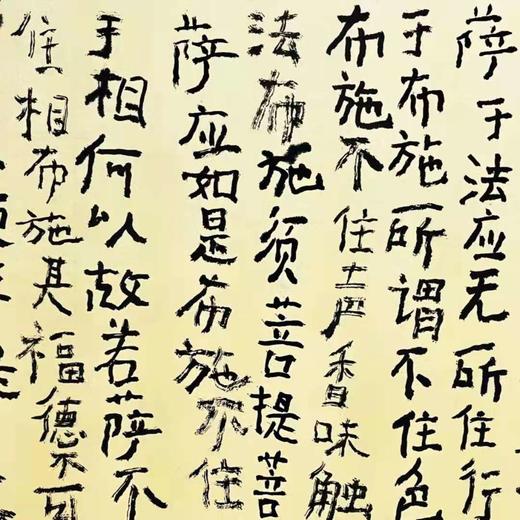 萨于法应无所住行
于布施所谓不住色
布施不住声香味触
法布施须菩提菩
萨应如是布施不住
于相何以故若萨不
住相布施其福德不可